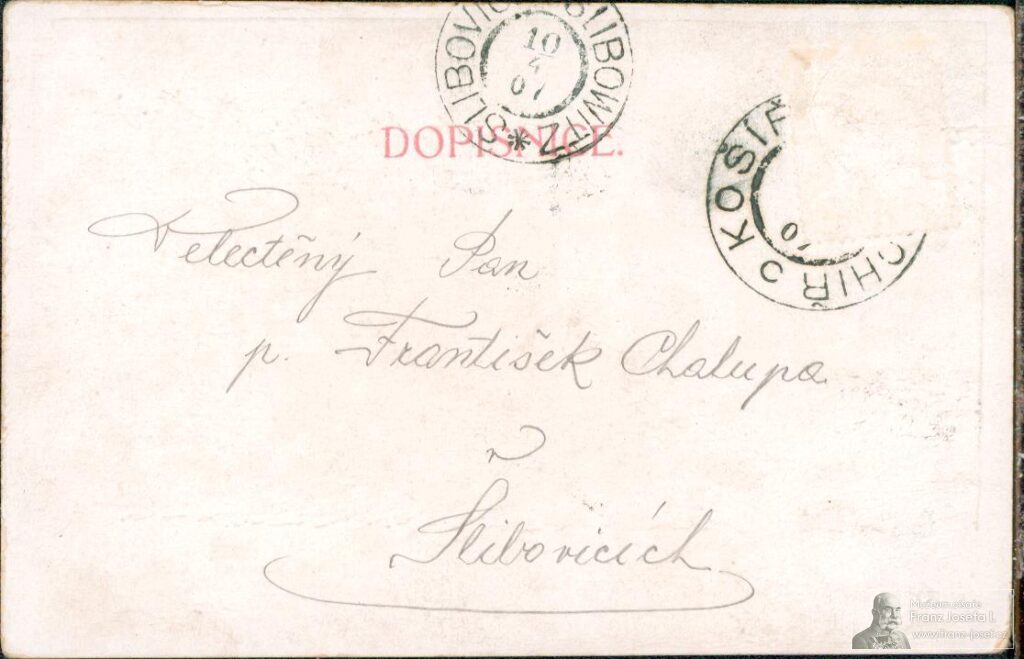 SLIBOVIC SLIBOWITZ
10
4
07
DOPISNICE.
KOŠÍŘ
CHIŘ
10
Velectěný Pan
p. František Chalupa
v
Slibovicích
Muzeum císaře
Franz Josefa I.
www.franz-josef.cz